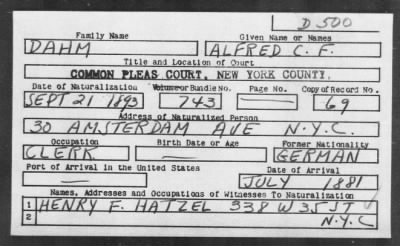 D 500
Family Name Given Name or Names
DAHM ALFRED C. F.
Title and Location of Court
COMMON PLEAS COURT, NEW YORK COUNTY.
Date of Naturalization Volume or Bundle No. Page No. Copy of Record No.
SEPT 21 1893 743 — 69
Address of Naturalized Person
30 AMSTERDAM AVE N.Y.C.
Occupation Birth Date or Age Former Nationality
CLERK — GERMAN
Port of Arrival in the United States Date of Arrival
— JULY 1881
Names, Addresses and Occupations of Witnesses To Naturalization
1 HENRY F. HATZEL 338 W 35 ST
2 N.Y.C